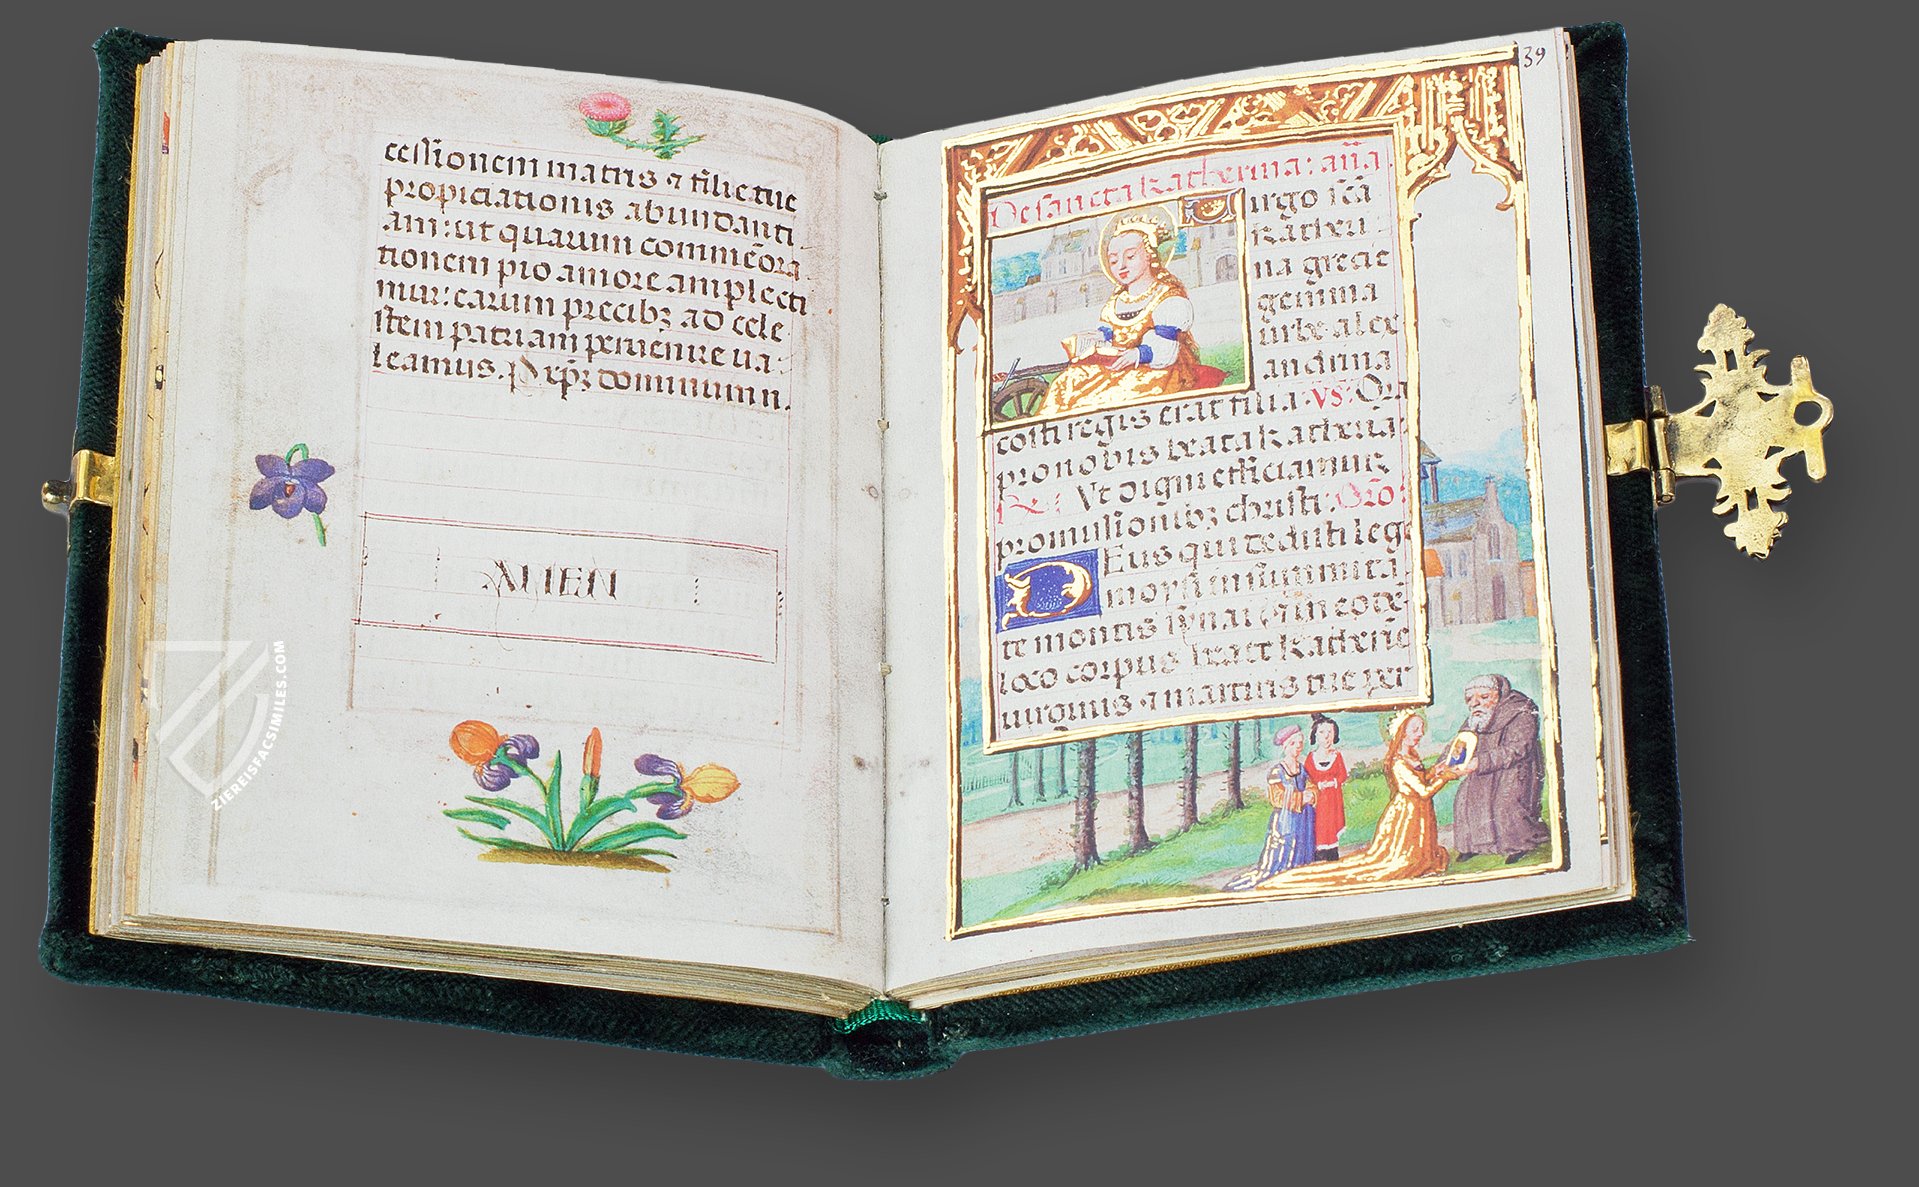 cessionem matris ⁊ filie tue
propiciationis abundanti
am: ut quarum commēora
tionem pio amore amplecti
mur: earum precibꝫ ad cele
stem patriam peruenire ua
leamus. P xp̄ꝫ dominum n.
AMEN
ZIEREISFACSIMILES.COM
39
De sancta Katherina: an̄a.
Virgo sc̄a
Katheri
na grecie
gemma
urbe alex
andrina
costi regis erat filia. VS. Ora
pro nobis beata Katherina
R. Vt digni efficiamur
promissionibꝫ christi. Orō
Deus qui dedisti lege
moysi in summita
te montis synai ⁊ in eodē
loco corpus beate Katherīe
uirginis ⁊ martiris tue per